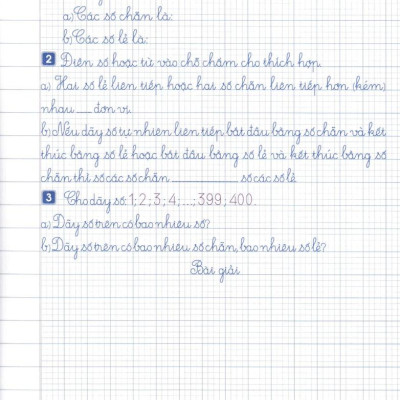 a) Các số chẵn là:
b) Các số lẻ là:
2 Điền số hoặc từ vào chỗ chấm cho thích hợp.
a) Hai số lẻ liên tiếp hoặc hai số chẵn liên tiếp hơn (kém)
nhau __ đơn vị.
b) Nếu dãy số tự nhiên liên tiếp bắt đầu bằng số chẵn và kết
thúc bằng số lẻ hoặc bắt đầu bằng số lẻ và kết thúc bằng số
chẵn thì số các số chẵn ________ số các số lẻ
3 Cho dãy số: 1; 2; 3; 4; ...; 399; 400.
a) Dãy số trên có bao nhiêu số?
b) Dãy số trên có bao nhiêu số chẵn, bao nhiêu số lẻ?
Bài giải